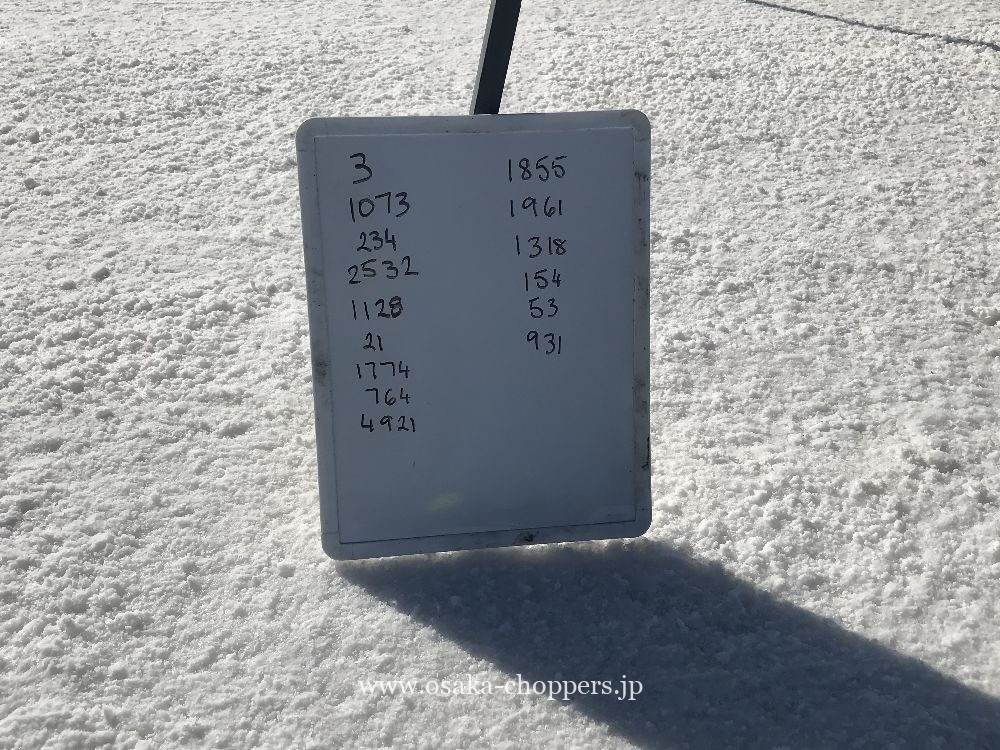 3
1073
234
2532
1128
21
1774
764
4921
1855
1961
1318
154
53
931
www.osaka-choppers.jp